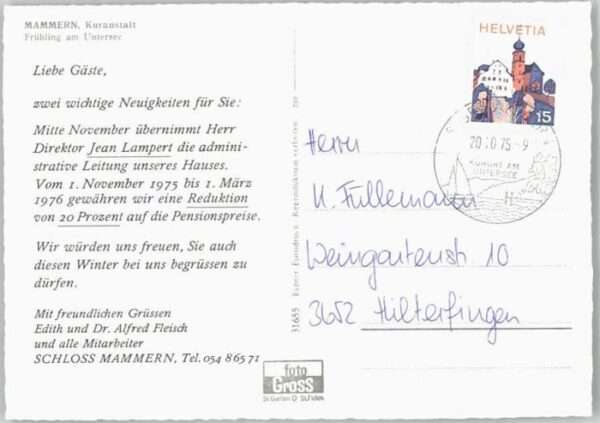 MAMMERN, Kuranstalt
Frühling am Untersee
Liebe Gäste,
zwei wichtige Neuigkeiten für Sie:
Mitte November übernimmt Herr
Direktor Jean Lampert die admini-
strative Leitung unseres Hauses.
Vom 1. November 1975 bis 1. März
1976 gewähren wir eine Reduktion
von 20 Prozent auf die Pensionspreise.
Wir würden uns freuen, Sie auch
diesen Winter bei uns begrüssen zu
dürfen.
Mit freundlichen Grüssen
Edith und Dr. Alfred Fleisch
und alle Mitarbeiter
SCHLOSS MAMMERN, Tel. 054 8 65 71
foto
Gross
St. Gallen
31655
Reproduktion verboten
HELVETIA
15
20.10.75-9
KURORT AM
UNTERSEE
Herrn
H. Füllemann
Weingartenstr 10
3652 Hilterfingen